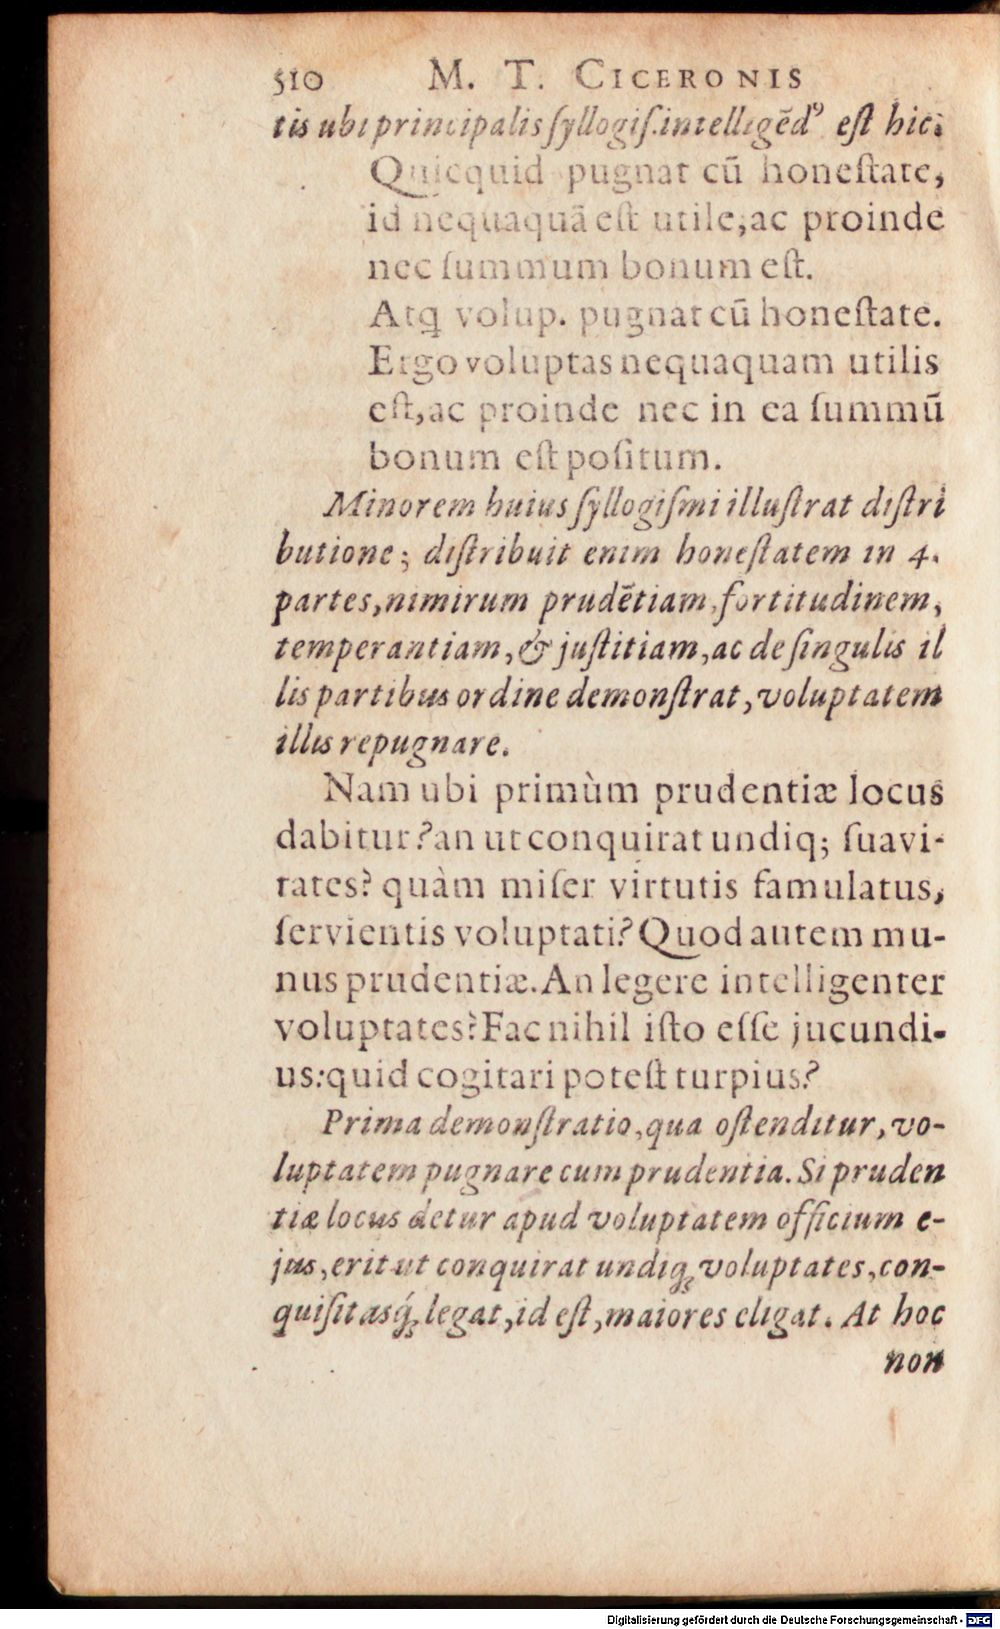 510 M. T. CICERONIS
tis ubi principalis ſyllogiſ. intelligēdꝰ eſt hic:
Quicquid pugnat cū honeſtate,
id nequaquā eſt utile, ac proinde
nec ſummum bonum eſt.
Atq volup. pugnat cū honeſtate.
Ergo voluptas nequaquam utilis
eſt, ac proinde nec in ea ſummū
bonum eſt poſitum.
Minorem huius ſyllogiſmi illuſtrat diſtri
butione; diſtribuit enim honeſtatem in 4.
partes, nimirum prudētiam, fortitudinem,
temperantiam, & juſtitiam, ac de ſingulis il
lis partibus ordine demonſtrat, voluptatem
illis repugnare.
Nam ubi primùm prudentiæ locus
dabitur? an ut conquirat undiq; ſuavi-
tates? quàm miſer virtutis famulatus,
ſervientis voluptati? Quod autem mu-
nus prudentiæ. An legere intelligenter
voluptates? Fac nihil iſto eſſe jucundi-
us: quid cogitari poteſt turpius?
Prima demonſtratio, qua oſtenditur, vo-
luptatem pugnare cum prudentia. Si pruden
tiæ locus detur apud voluptatem officium e-
jus, erit ut conquirat undiq; voluptates, con-
quiſitasq́; legat, id eſt, maiores eligat. At hoc
non
Digitalisierung gefördert durch die Deutsche Forschungsgemeinschaft - DFG